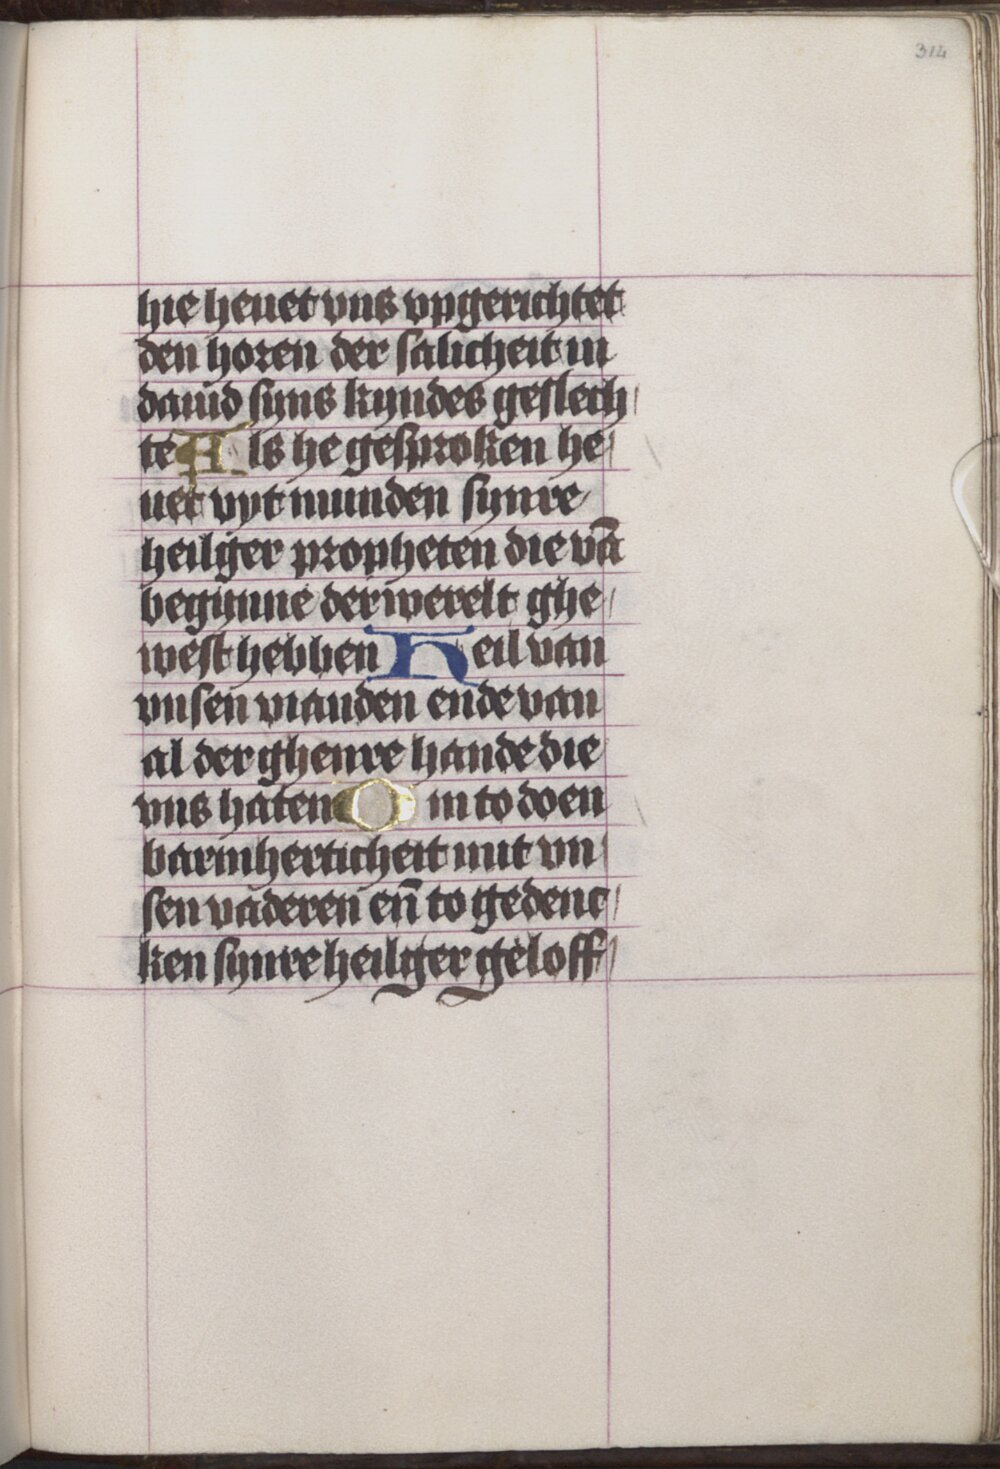 314
hie heuet vns vpgerichtet
den horen der salicheit in
dauid syns kyndes geslech
te Als he gesproken he
uet vyt munden synre
heilger propheten die vā
begynne der werelt ghe
west hebben Heil van
vnsen vianden ende van
al der ghenre hande die
vns haten Om to doen
barmherticheit mit vn
sen vaderen eñ to gedenc
ken synre heilger geloff